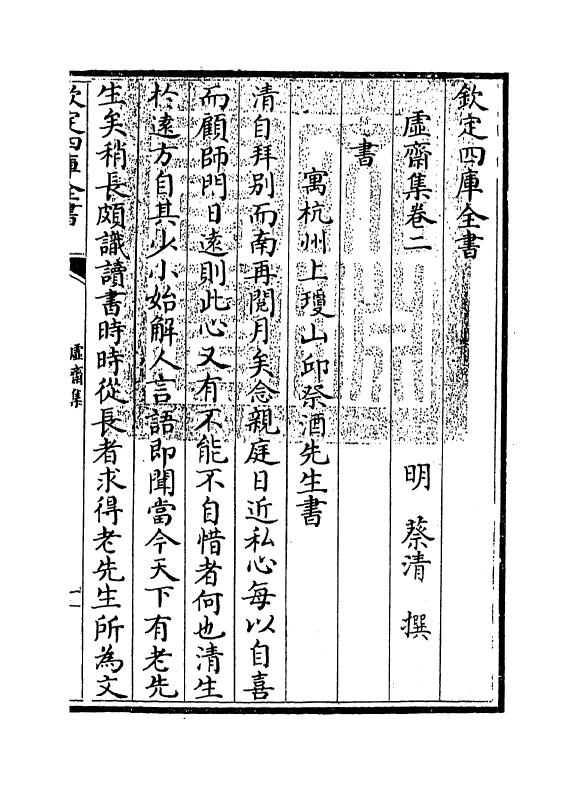 欽定四庫全書
虛齋集卷二
明 蔡清 撰
書
寓杭州上瓊山邱祭酒先生書
清自拜别而南再閱月矣念親庭日近私心每以自喜
而顧師門日遠則此心又有不能不自惜者何也清生
於遠方自其少小始解人言語即聞當今天下有老先
生矣稍長頗識讀書時時從長者求得老先生所為文
欽定四庫全書
虛齋集
一